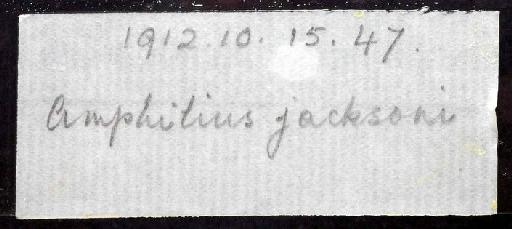 1912.10.15.47.
Amphilius jacksoni